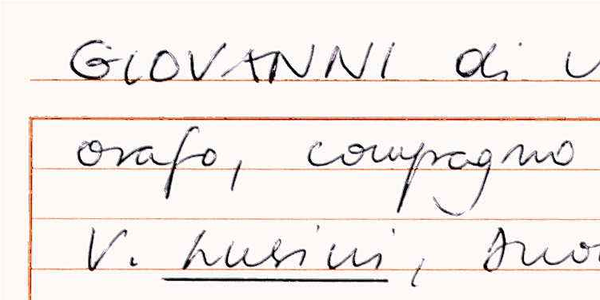 GIOVANNI di
orafo, compagno
V. Lusini,